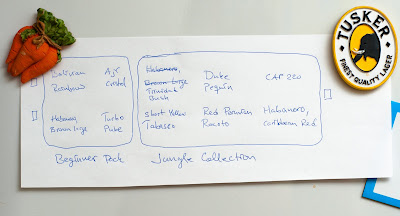 Bolivian
Rainbow
Aji
Cristal
Habanero,
Brown large
Turbo
Pube
Beginner Pack
Habanero,
Brown large
Trinidad
Bush
Duke
Pequin
CAP 220
Short Yellow
Tabasco
Red Peruvian
Rocoto
Habanero,
Caribbean Red
Jungle Collection
TUSKER
FINEST QUALITY LAGER